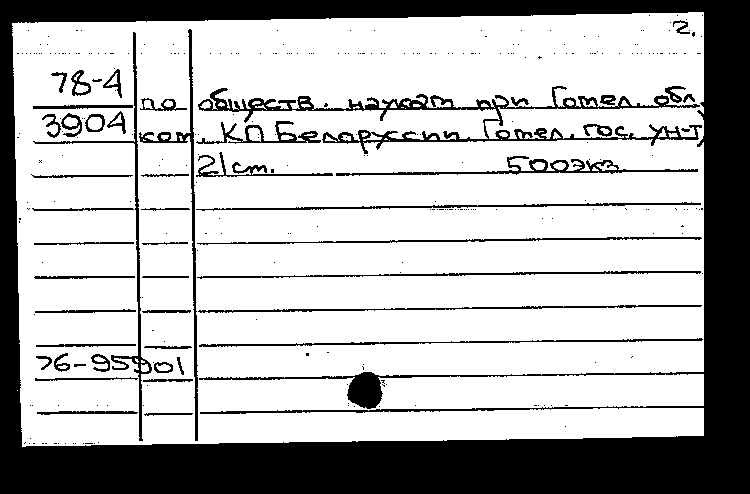 2.
78-4 по обществ. наукам при Гомел. обл.
3904 ком. КП Белоруссии. Гомел. гос. ун-т)
21 ст. 500 экз
76-95901